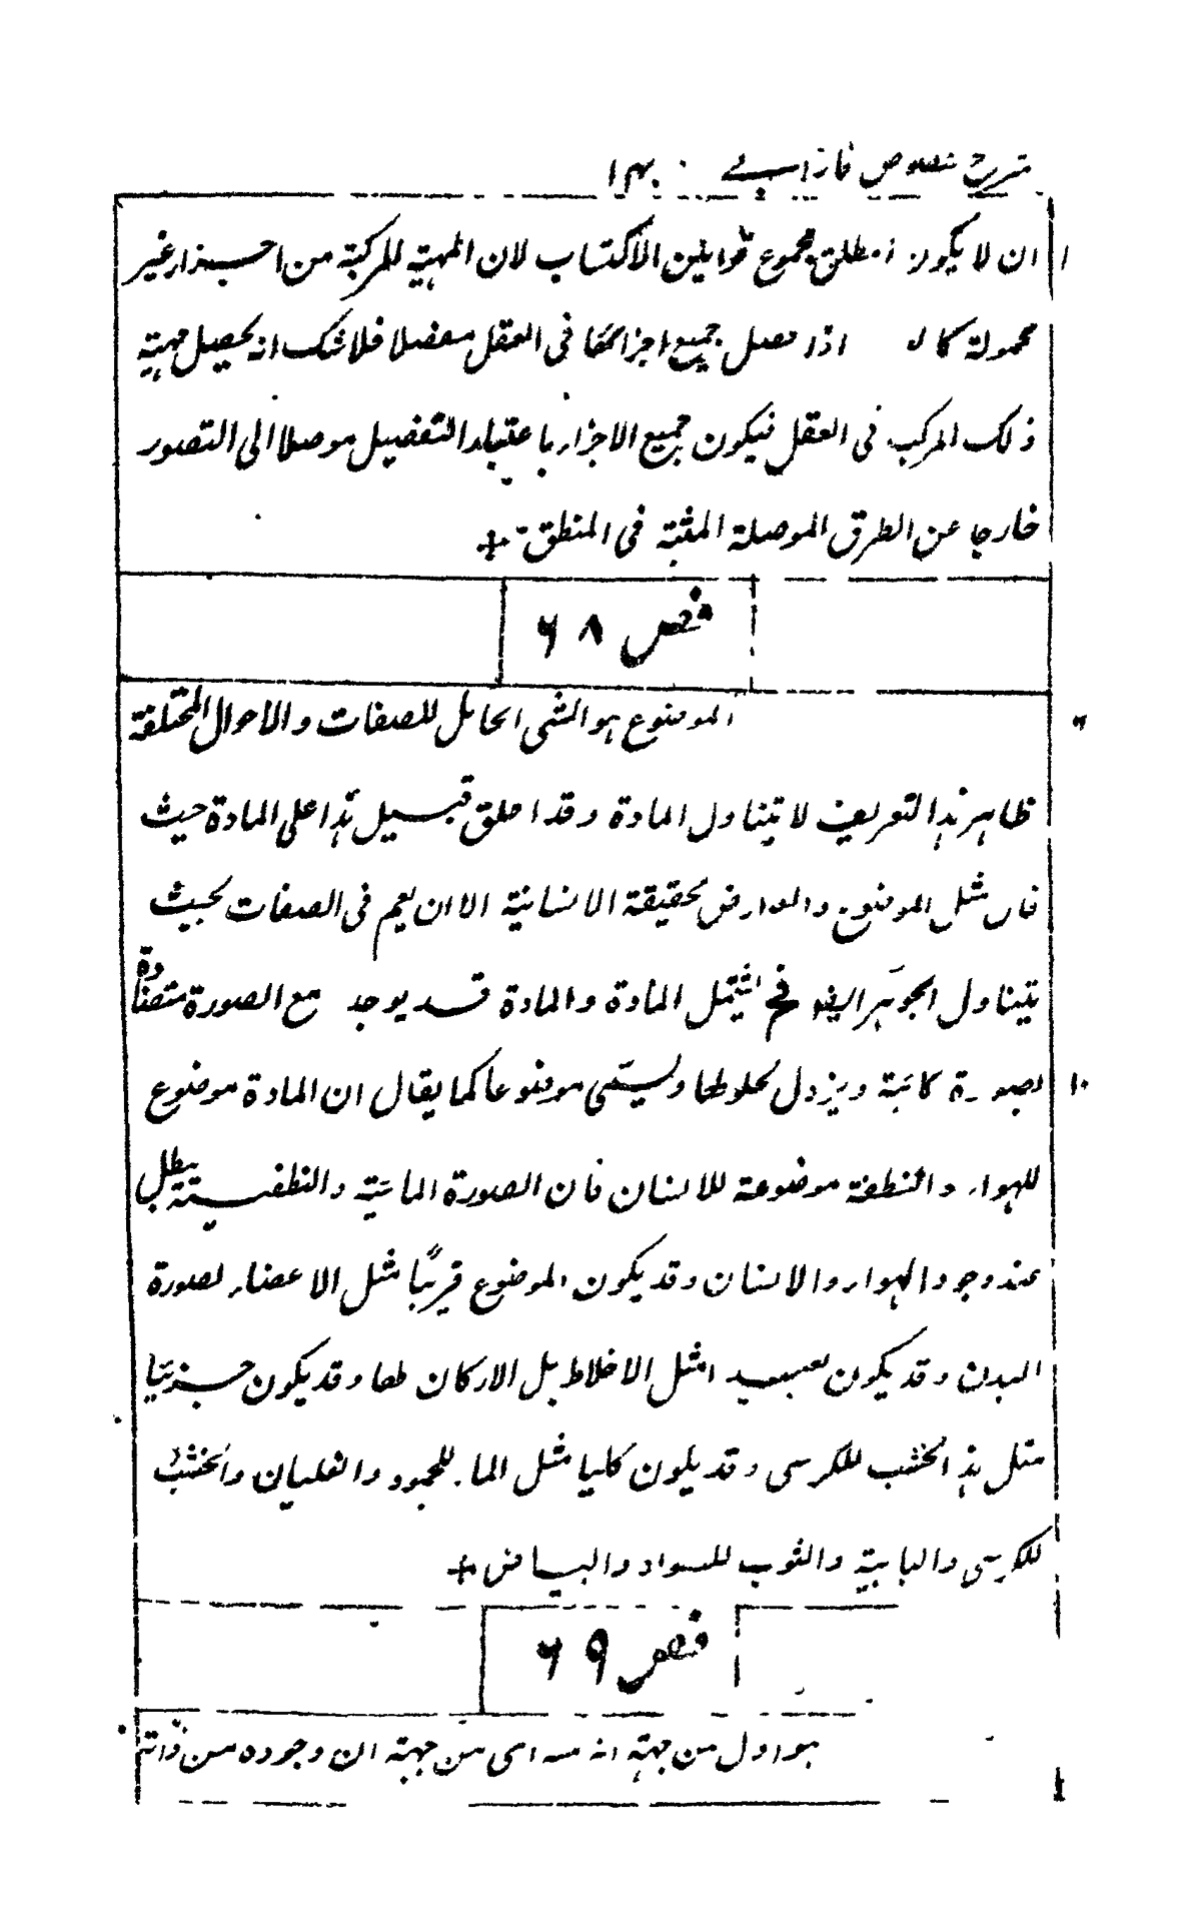 شرح نصوص فارابی
ان لا یکون المنطق مجموع قوانین الاکتساب لان المهیة المرکبة من اجزاء غیر
محمولة اذا حصل جمیع اجزائها فی العقل مفصلا فلا شک انه یحصل مهیة
ذلک المرکب فی العقل فیکون جمیع الاجزاء باعتبار التفصیل موصلا الی التصور
خارجا عن الطرق الموصلة المثبتة فی المنطق +
فص ۶۸
الموضوع هو الشی الحامل للصفات والاحوال المختلفة
ظاهر هذا التعریف لا یتناول المادة وقد اطلق قبیل هذا علی المادة حیث
قال مثل الموضوع والعوارض لحقیقة الانسانیة الا ان یعم فی الصفات بحیث
یتناول الجوهر ایضا فح یشتمل المادة والمادة قد یوجد مع الصورة متضادة
لصورة کائنة ویزول لحلولها ویسمی موضوعا کما یقال ان المادة موضوع
۱۰
للهواء والنطفة موضوعة للانسان فان الصورة المائیة والنطفیة یبطل
عند وجود الهواء والانسان وقد یکون الموضوع قریبًا مثل الاعضاء لصورة
البدن وقد یکون بعیدا مثل الاخلاط بل الارکان لها وقد یکون جزئیا
مثل هذا الخشب للکرسی وقد یکون کلیا مثل الماء للجمود والغلیان والخشب
للکرسی والبابیة والثوب للسواد والبیاض +
فص ۶۹
هو اول من جهة انه منه ای من جهة ان وجوده من ذاته